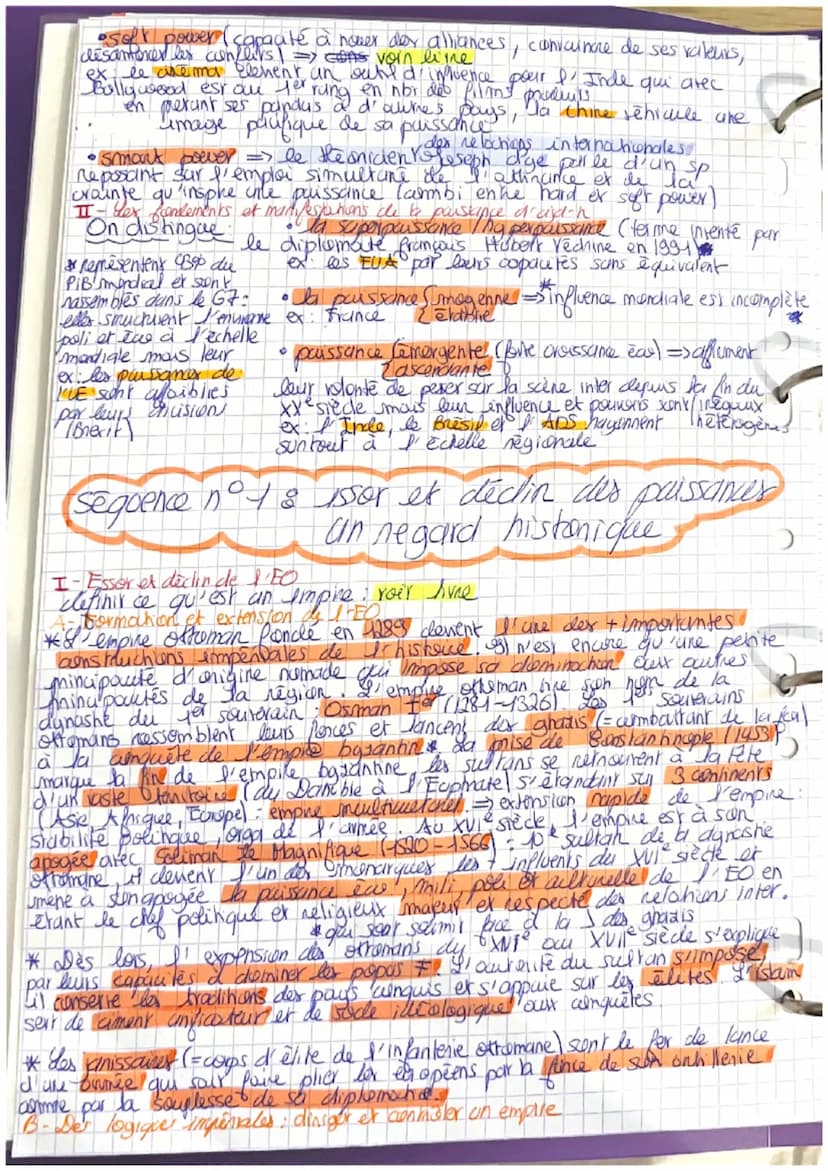 • soft power (capacité à nouer des alliances, convaincre de ses valeurs,
désamorcer les conflits) => voir livre
ex : le cinéma élément un outil d'influence pour l'Inde qui avec
Bollywood est au 1er rang en nbr de films produits
en prêtant ses pandas à d'autres pays, la Chine véhicule une
image pacifique de sa puissance
des relations internationales
• smart power => le théoricien Joseph Nye parle d'un sp
reposant sur l'emploi simultané de l'attirance et de la
crainte qu'inspire une puissance (combi entre hard et soft power)
II - Les fondements et manifestations de la puissance d'ajd-h
On distingue : • la superpuissance / hyperpuissance (terme inventé par
le diplomate français Hubert Védrine en 1991)
ex : les EUA par leurs capacités sans équivalent
* représentent du
PIB mondial et sont
rassemblés dans le G7 :
elles structurent l'
poli et éco à l'échelle
mondiale mais leur
ex : les puissances de
l'UE sont affaiblies
par leurs division
(Brexit)
• la puissance moyenne => influence mondiale est incomplète *
ex : France
• puissance émergente (forte croissance éco) => affirment
ascendante
leur volonté de peser sur la scène inter depuis la fin du
XXe siècle mais leur influence et pouvoirs sont inégaux
ex : l'Inde, le Brésil et l'ADS rayonnent hétérogènes
surtout à l'échelle régionale
séquence n°1 : essor et déclin des puissances
un regard historique
I - Essor et déclin de l'EO
définir ce qu'est un empire : voir livre
A - Formation et extension de l'EO
* L'empire ottoman fondé en devient l'une des + importantes
constructions impériales de l'histoire. Il n'est encore qu'une petite
principauté d'origine nomade qui impose sa domination aux autres
principautés de la région. L'empire ottoman tire son nom de la
dynastie du 1er souverain : Osman 1er (1281-1326). Les 1ers souverains
ottomans rassemblent leurs forces et lancent des ghazis (= combattant de la foi)
à la conquête de l'empire byzantin * La prise de Constantinople (1453)
marque la fin de l'empire byzantine les sultans se retrouvent à la tête
d'un vaste territoire (du Danube à l'Euphrate) s'étendant sur 3 continents
(Asie Afrique, Europe) : empire multiculturel => extension rapide de l'empire :
stabilité politique, orga de l'armée. Au XVIe siècle l'empire est à son
apogée avec Soliman le Magnifique (1520-1566) : 10e sultan de la dynastie
ottomane, il devient l'un des monarques les + influents du XVIe siècle et
mène à son apogée la puissance éco, mili, poli et culturelle de l'EO en
étant le chef politique et religieux majeur et respecté des relations inter.
* qui sont face à la des ghazis
* Dès lors, l'expension des ottomans du XVIe au XVIIe siècle s'explique
par leurs capacités à dominer les popus ≠. L'autorité du sultan s'impose,
il conserve les traditions des pays conquis et s'appuie sur les élites. L'islam
sert de ciment unificateur et de socle idéologique aux conquêtes.
* Les janissaires (= corps d'élite de l'infanterie ottomane) sont le fer de lance
d'une armée qui sait faire plier les européens par la force de son artillerie
comme par la souplesse de sa diplomatie.
B - Des logiques impériales : diriger et contrôler un empire